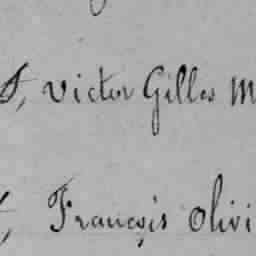 t, Victor Gilles M
t, François Olivi